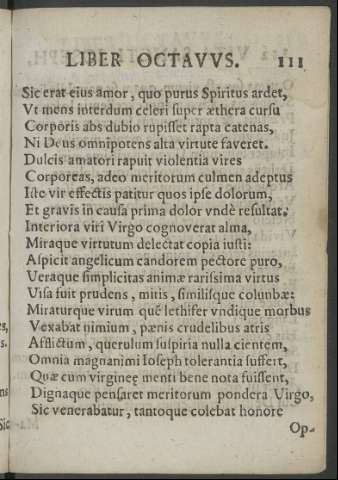 LIBER OCTAVVS. 111
Sic erat eius amor, quo purus Spiritus ardet,
Vt mens interdum celeri super æthera cursu
Corporis abs dubio rupisset rapta catenas,
Ni Deus omnipotens alta virtute faveret.
Dulcis amatori rapuit violentia vires
Corporeas, adeo meritorum culmen adeptus
Iste vir effectis patitur quos ipse dolorum,
Et gravis in causa prima dolor vndè resultat.
Interiora viri Virgo cognoverat alma,
Miraque virtutum delectat copia iusti:
Aspicit angelicum candorem pectore puro,
Veraque simplicitas animæ rarissima virtus
Visa fuit prudens, mitis, similisque columbæ:
Miraturque virum quē lethifer vndique morbus
Vexabat nimium, pænis crudelibus atris
Afflictum, querulum suspiria nulla cientem,
Omnia magnanimi Ioseph tolerantia suffert,
Quæ cum virgineę menti bene nota fuissent,
Dignaque pensaret meritorum pondera Virgo,
Sic venerabatur, tantoque colebat honore
Op-